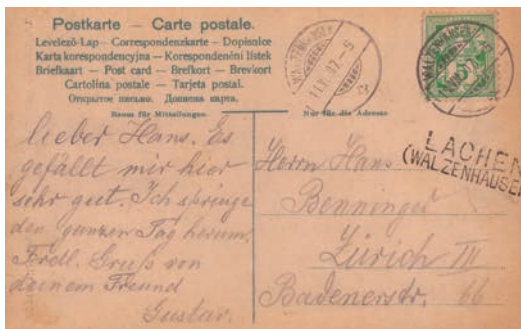 Postkarte — Carte postale.
Levelező-Lap — Correspondenzkarte — Dopisnice
Karta korespondencyjna — Korespondenční lístek
Briefkaart — Post card — Brefkort — Brevkort
Cartolina postale — Tarjeta postal.
Открытое письмо. Дописна карта.
Raum für Mitteilungen.
Nur für die Adresse
WALZENHAUSEN
LACHEN
(WALZENHAUSEN
lieber Hans. Es
gefällt mir hier
sehr gut. Ich springe
den ganzen Tag herum.
Frdl. Gruß von
deinem Freund
Gustav.
Herrn Hans
Benninger
Zürich III
Badenerstr. 66